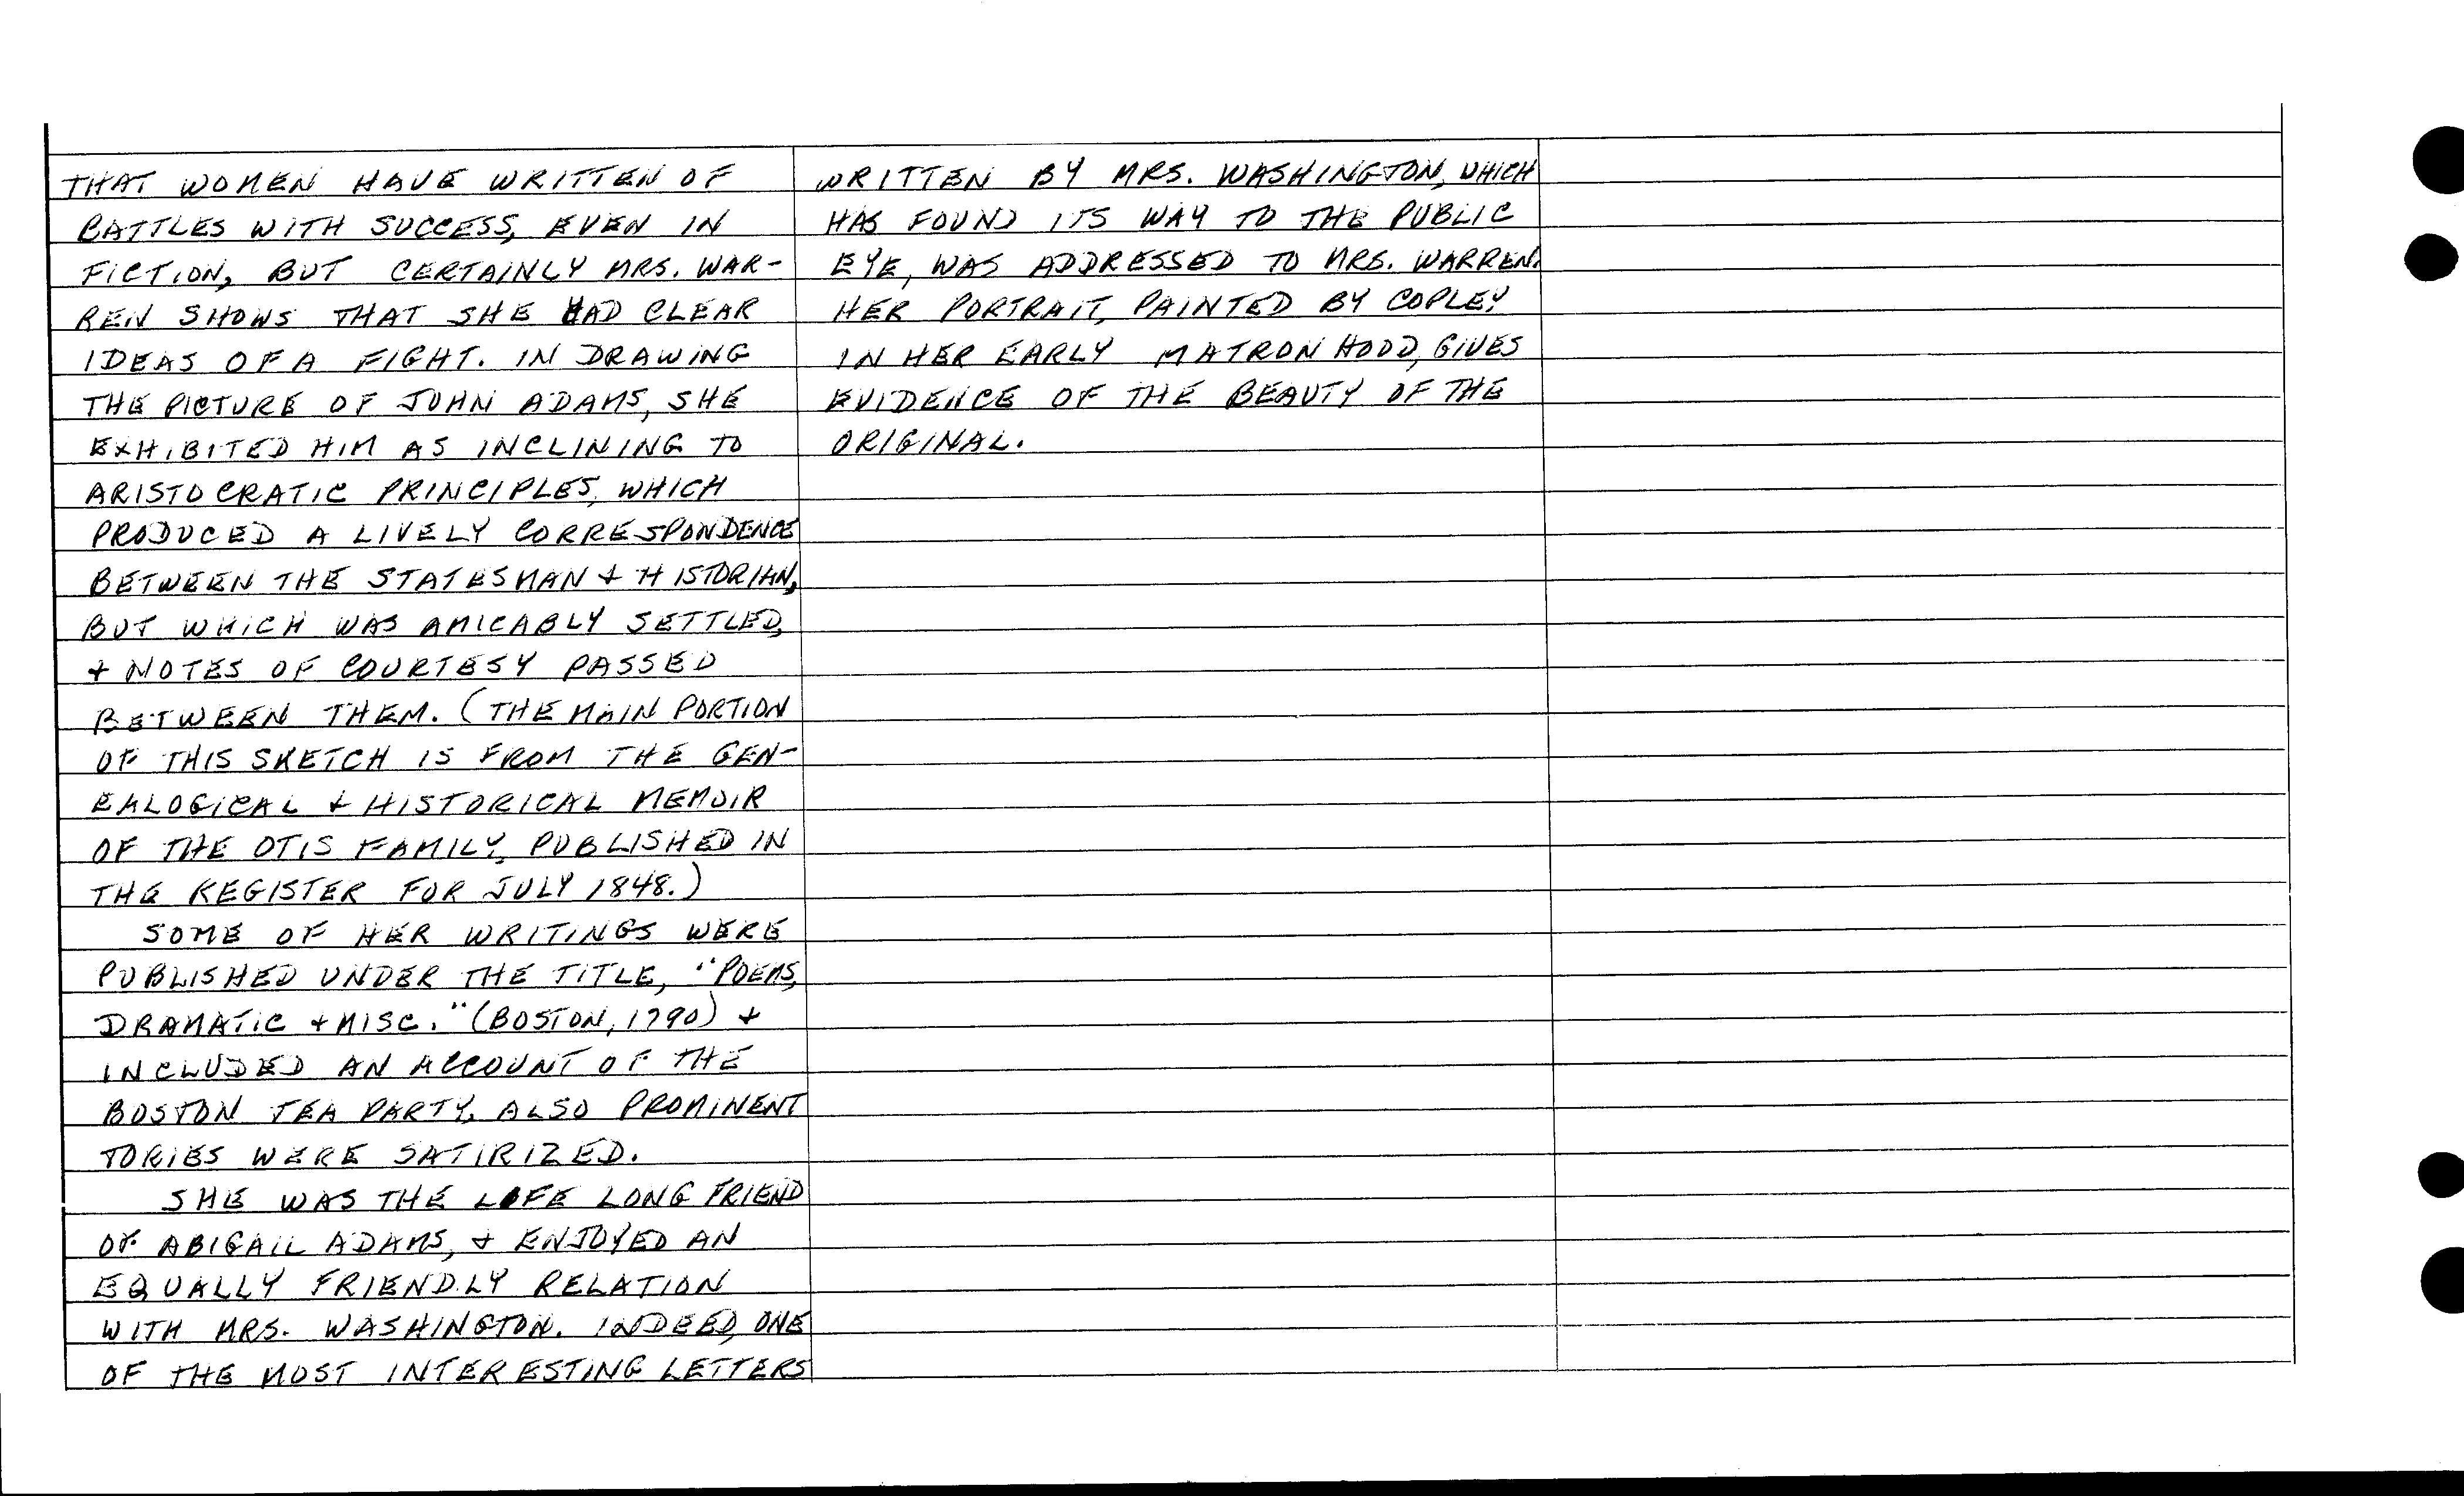 THAT WOMEN HAVE WRITTEN OF
BATTLES WITH SUCCESS, EVEN IN
FICTION, BUT CERTAINLY MRS. WAR-
REN SHOWS THAT SHE HAD CLEAR
IDEAS OF A FIGHT. IN DRAWING
THE PICTURE OF JOHN ADAMS, SHE
EXHIBITED HIM AS INCLINING TO
ARISTOCRATIC PRINCIPLES, WHICH
PRODUCED A LIVELY CORRESPONDENCE
BETWEEN THE STATESMAN & HISTORIAN,
BUT WHICH WAS AMICABLY SETTLED,
& NOTES OF COURTESY PASSED
BETWEEN THEM. (THE MAIN PORTION
OF THIS SKETCH IS FROM THE GEN-
EALOGICAL & HISTORICAL MEMOIR
OF THE OTIS FAMILY, PUBLISHED IN
THE REGISTER FOR JULY 1848.)
SOME OF HER WRITINGS WERE
PUBLISHED UNDER THE TITLE, "POEMS,
DRAMATIC & MISC." (BOSTON, 1790) &
INCLUDED AN ACCOUNT OF THE
BOSTON TEA PARTY, ALSO PROMINENT
TORIES WERE SATIRIZED.
SHE WAS THE LIFE LONG FRIEND
OF ABIGAIL ADAMS, & ENJOYED AN
EQUALLY FRIENDLY RELATION
WITH MRS. WASHINGTON. INDEED, ONE
OF THE MOST INTERESTING LETTERS
WRITTEN BY MRS. WASHINGTON, WHICH
HAS FOUND ITS WAY TO THE PUBLIC
EYE, WAS ADDRESSED TO MRS. WARREN.
HER PORTRAIT, PAINTED BY COPLEY
IN HER EARLY MATRONHOOD, GIVES
EVIDENCE OF THE BEAUTY OF THE
ORIGINAL.